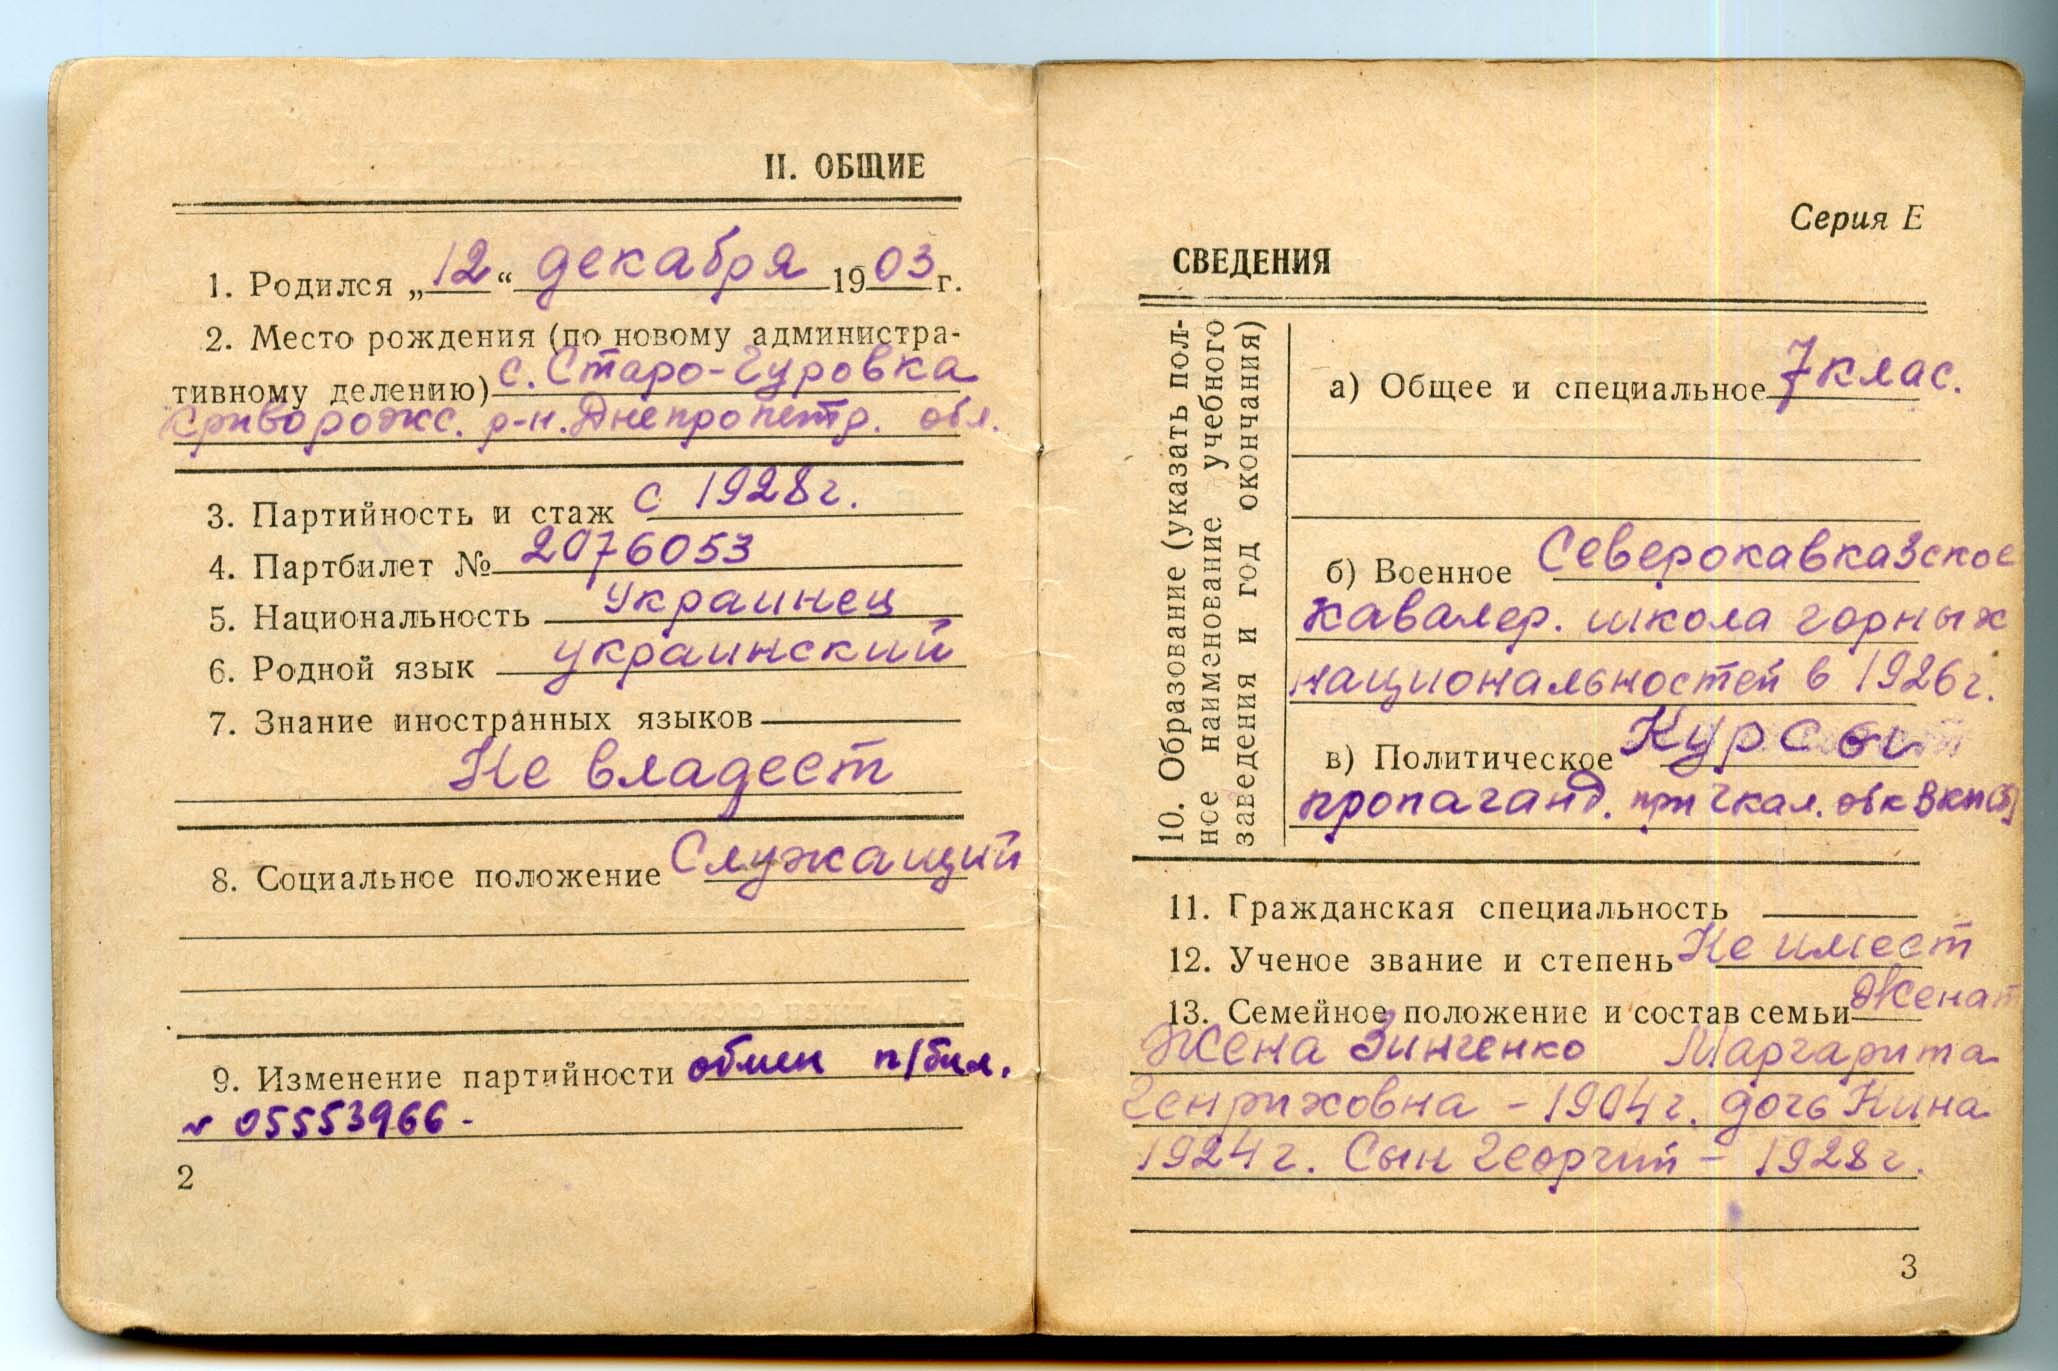 II. ОБЩИЕ
1. Родился „12“ декабря 1903 г.
2. Место рождения (по новому администра-
тивному делению) с. Старо-Гуровка
Криворожс. р-н. Днепропетр. обл.
3. Партийность и стаж с 1928 г.
4. Партбилет № 2076053
5. Национальность украинец
6. Родной язык украинский
7. Знание иностранных языков
Не владеет
8. Социальное положение Служащий
9. Изменение партийности обмен п/бил.
№ 05553966 -
2
Серия Е
СВЕДЕНИЯ
10. Образование (указать пол-
ное наименование учебного
заведения и год окончания)
а) Общее и специальное 7 клас.
б) Военное Северокавказское
кавалер. школа горных
национальностей в 1926 г.
в) Политическое Курсы
пропаганд. при Чкал. обк ВКП(б)
11. Гражданская специальность
12. Ученое звание и степень Не имеет
13. Семейное положение и состав семьи Женат
Жена Зинченко Маргарита
Генриховна - 1904 г. дочь Нина
1924 г. Сын Георгий - 1928 г.
3